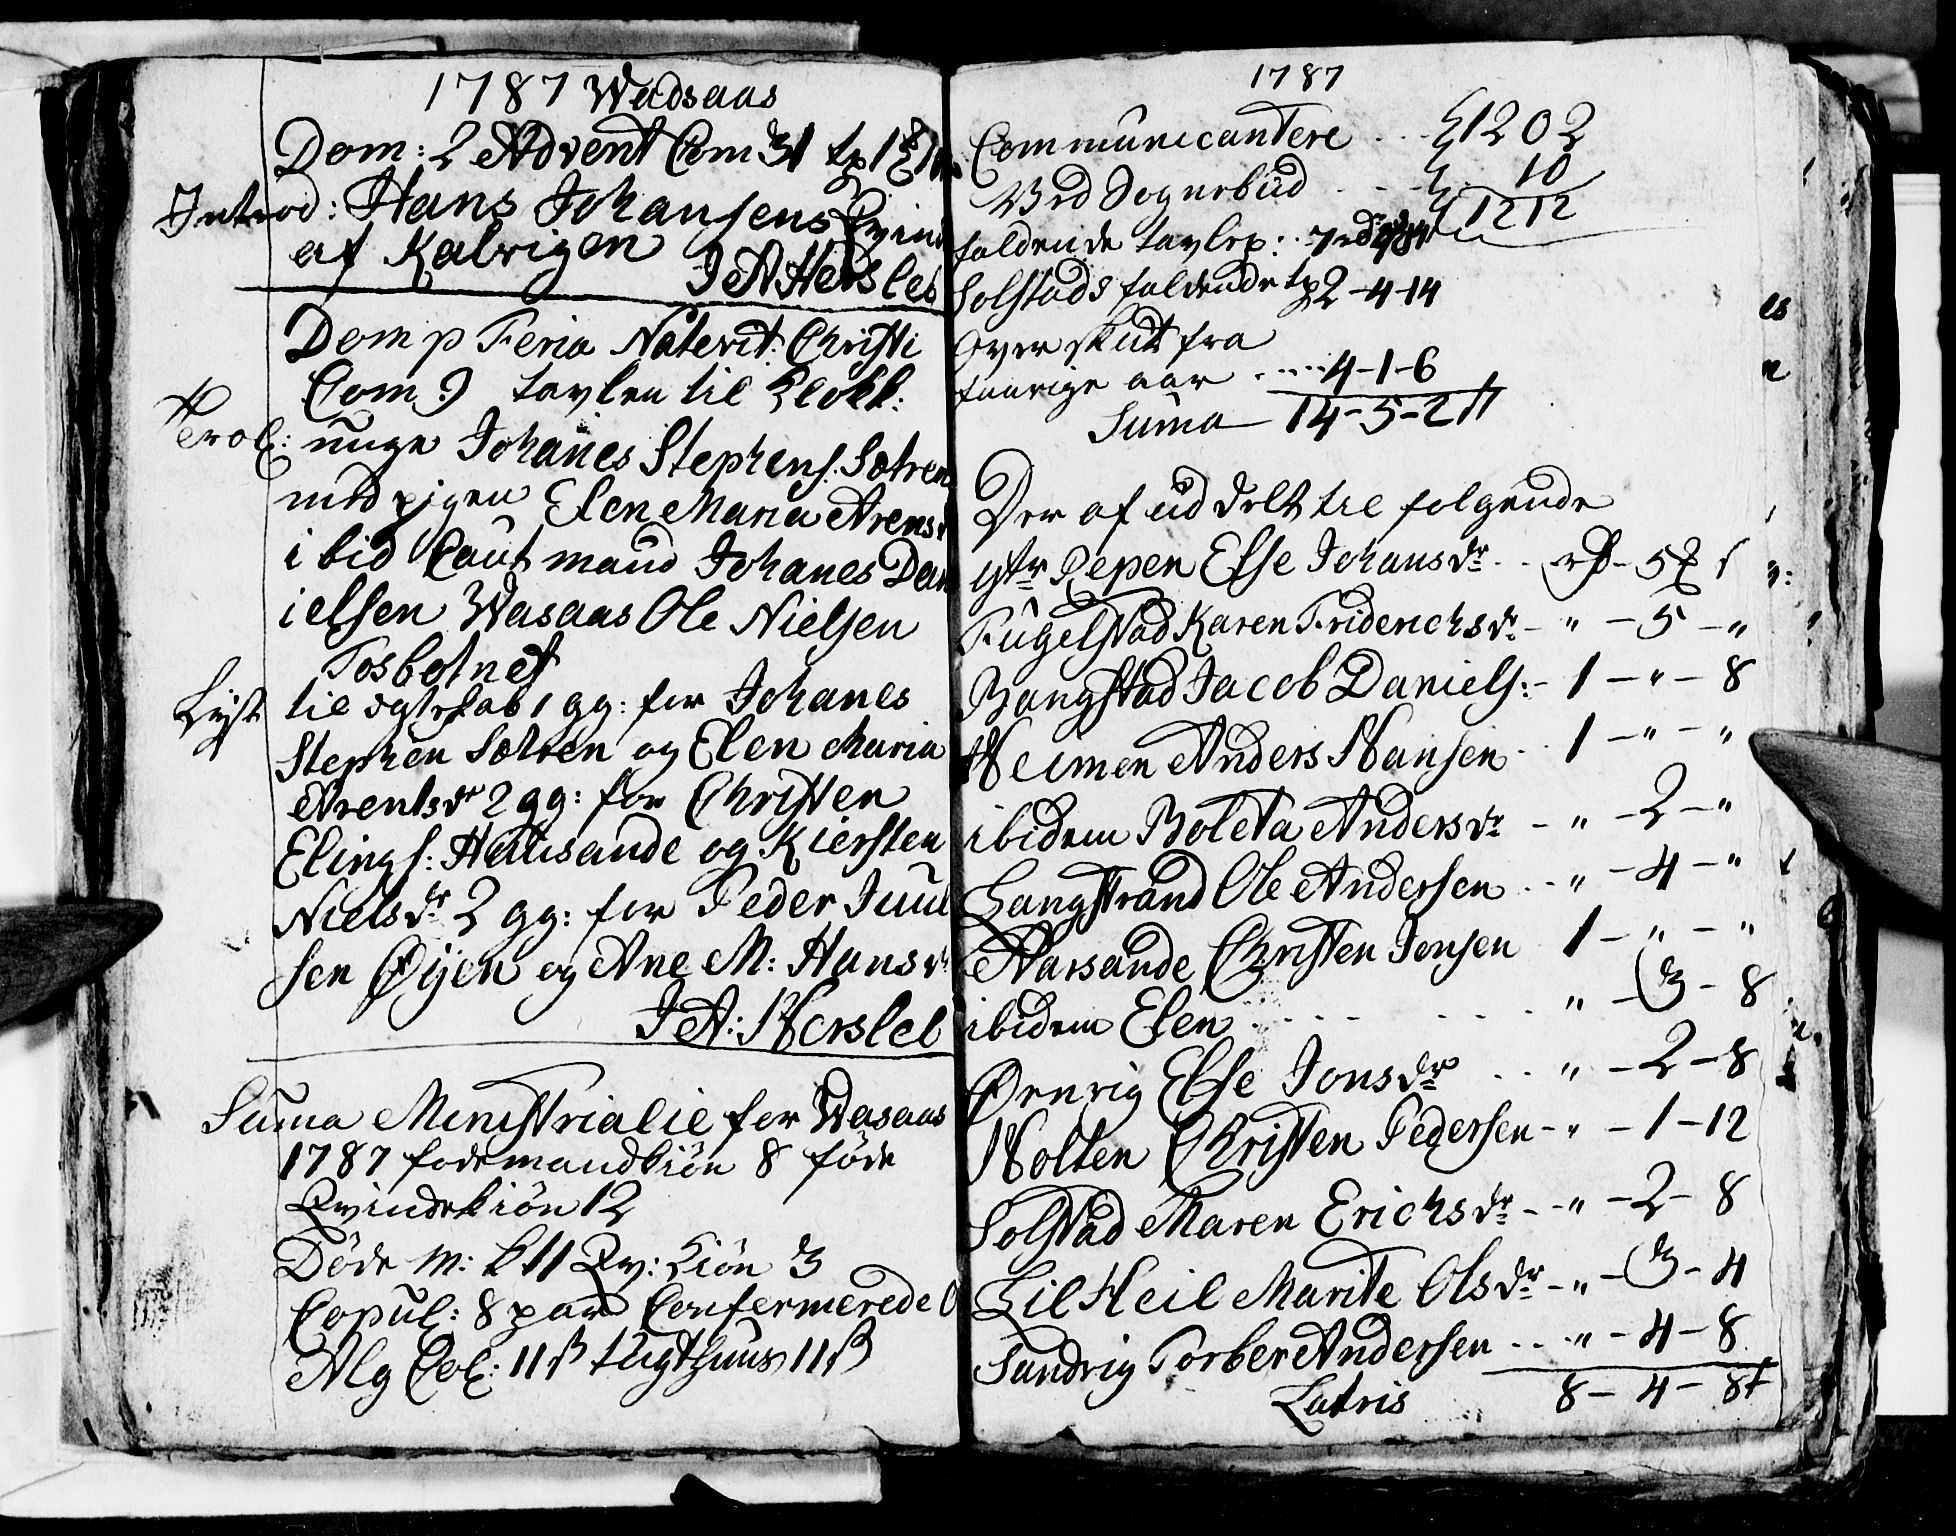 1787 Wadsaas
Dom: 2 Advent Com 31
Introd: Hans Johansens Qvin
af Kalvigen
J A Hersleb
Dom p Feria Nativit: Christi
Com 9 tavlen til Klokk:
Trol: unge Johanes Stephens. Sætren
med pigen Elen Maria Arens
ibid Caut mænd Johanes Dan
ielsen Wasaas Ole Nielsen
Tosbotnet
Lyst til Egteskab 1 gg: for Johanes
Stephen Sætren og Elen Maria
Arentsdr 2 gg: for Christen
Elingf: Halsande og Kiersten
Nielsdr 2 gg: for Peder Juul
sen Øijen og Ane M: Hansd
J A: Hersleb
Suma Ministrialie for Wasaas
1787 føde mandkiøn 8 føde
Qvindekiøn 12
Døde M: k 11 Qv: kiøn 3
Copul: 8 par Confermerede
Alg Col: 11 ß tugthuus 11 ß
1787
Communicantere . . . 1202
Ved Sognebud . . . 10
1212
faldende tavlep: . 7 rd
Solstads faldende tp 2-4-14
Overskut fra
faarige aar . . . . . 4-1-6
Suma 14-5-2 ß
Der af uddelt til følgende
Repen Else Johansdr . . rd - 5 ß
Fugelstad Karen Friderichsdr - " - 5 - "
Bangstad Jacob Daniels: - 1 - " - 8
Heimen Anders Hansen . . 1 - " - "
ibidem Boleta Andersdr - " - 2 - "
Langstrand Ole Andersen . . " - 4 - "
Aarsande Christen Jonsen 1 - " - "
ibidem Elen . . . . . . . " - 3 - 8
Ørnvig Else Jonsdr . . " - 2 - 8
Holten Christen Pedersen - " - 1 - 12
Solstad Maren Erichsdr - - " - 2 - 8
Lil Heil Marite Olsdr - " - 3 - 4
Sundvig Torber Andersen . . " - 4 - 8
Latris 8 - 4 - 8 ß